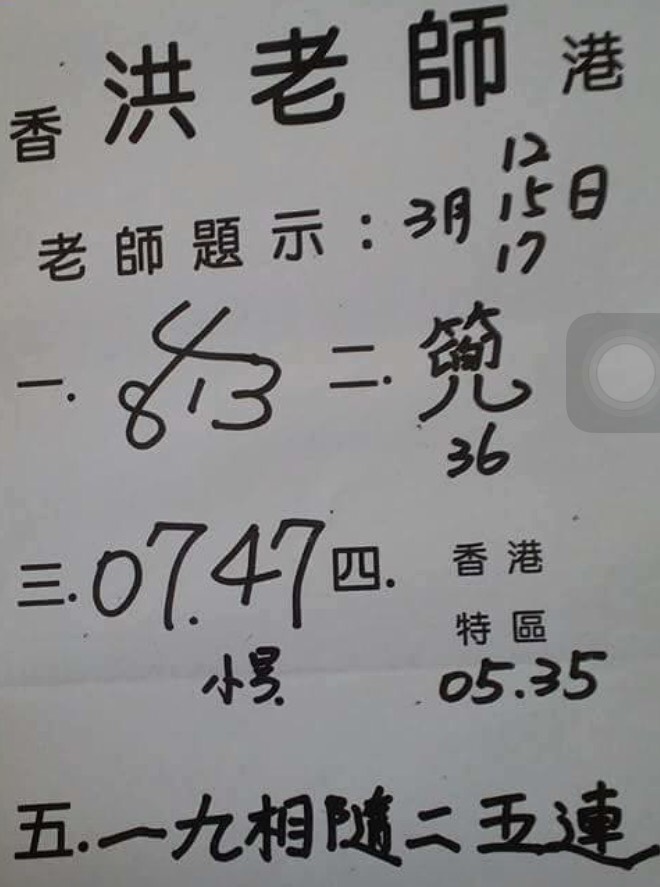 香 洪老師 港
老師題示：3月 12 15 17 日
一. 8 13 二.
36
三. 07.47 四. 香港
特區
小号. 05.35
五. 一九相隨二五連